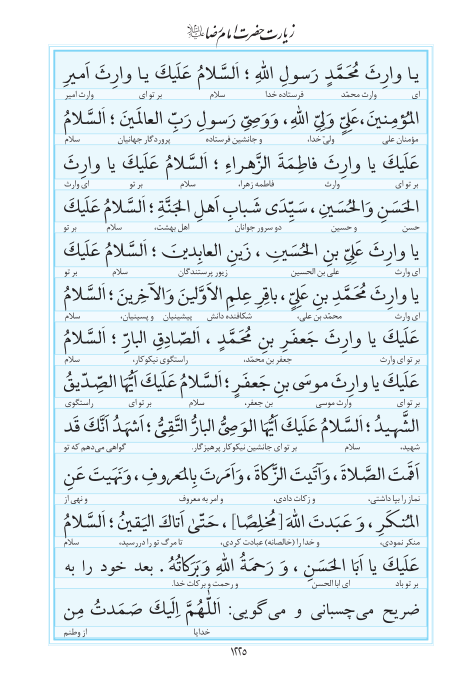 زیارت حضرت امام رضا
یا وارِثَ مُحَمَّدٍ رَسولِ اللهِ ؛ اَلسَّلامُ عَلَیكَ یا وارِثَ اَمیرِ
ای وارث محمّد فرستاده خدا سلام بر تو ای وارث امیر
المُؤمِنینَ، عَلِيٍّ وَلِيِّ اللهِ، وَوَصِيِّ رَسولِ رَبِّ العالَمینَ ؛ اَلسَّلامُ
مؤمنان علی ولیّ خدا، و جانشین فرستاده پروردگار جهانیان سلام
عَلَیكَ یا وارِثَ فاطِمَةَ الزَّهراءِ ؛ اَلسَّلامُ عَلَیكَ یا وارِثَ
بر تو ای وارث فاطمه زهرا، سلام بر تو ای وارث
الحَسَنِ وَالحُسَینِ ، سَیِّدَی شَبابِ اَهلِ الجَنَّةِ ؛ اَلسَّلامُ عَلَیكَ
حسن و حسین دو سرور جوانان اهل بهشت، سلام بر تو
یا وارِثَ عَلِيِّ بنِ الحُسَینِ ، زَینِ العابِدینَ ؛ اَلسَّلامُ عَلَیكَ
ای وارث علی بن الحسین زیور پرستندگان سلام بر تو
یا وارِثَ مُحَمَّدِ بنِ عَلِيٍّ، باقِرِ عِلمِ الاَوَّلینَ وَالآخِرینَ ؛ اَلسَّلامُ
ای وارث محمّد بن علی، شکافنده دانش پیشینیان و پسینیان، سلام
عَلَیكَ یا وارِثَ جَعفَرِ بنِ مُحَمَّدٍ ، اَلصّادِقِ البارِّ ؛ اَلسَّلامُ
بر تو ای وارث جعفر بن محمّد، راستگوی نیکوکار، سلام
عَلَیكَ یا وارِثَ موسَی بنِ جَعفَرٍ ؛ اَلسَّلامُ عَلَیكَ اَیُّهَا الصِّدّیقُ
بر تو ای وارث موسی بن جعفر، سلام بر تو ای راستگوی
الشَّهیدُ ؛ اَلسَّلامُ عَلَیكَ اَیُّهَا الوَصِيُّ البارُّ التَّقِيُّ ؛ اَشهَدُ اَنَّكَ قَد
شهید، سلام بر تو ای جانشین نیکوکار پرهیزگار. گواهی می‌دهم که تو
اَقَمتَ الصَّلاةَ ، وَآتَیتَ الزَّكاةَ ، وَاَمَرتَ بِالمَعروفِ ، وَنَهَیتَ عَنِ
نماز را بپا داشتی، و زکات دادی، و امر به معروف و نهی از
المُنكَرِ ، وَ عَبَدتَ اللهَ [مُخلِصًا] ، حَتّیٰ اَتاكَ الیَقینُ ؛ اَلسَّلامُ
منکر نمودی، و خدا را (خالصانه) عبادت کردی، تا مرگ تو را دررسید، سلام
عَلَیكَ یا اَبَا الحَسَنِ ، وَ رَحمَةُ اللهِ وَبَرَكاتُهُ . بعد خود را به
بر تو باد ای ابا الحسن و رحمت و برکات خدا.
ضریح می‌چسبانی و می‌گویی: اَللّٰهُمَّ اِلَیكَ صَمَدتُ مِن
خدایا از وطنم
۱۲۲۵